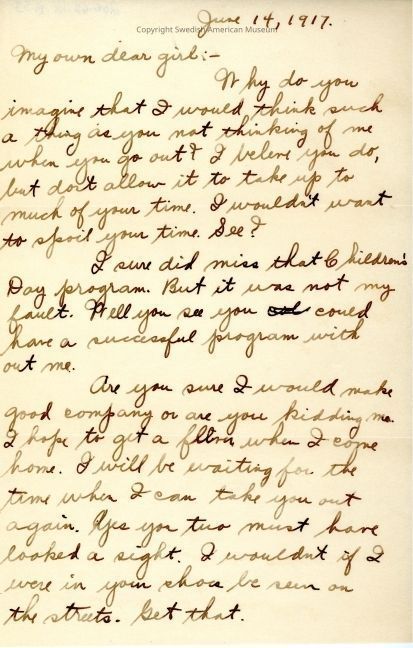 June 14, 1917.
Copyright Swedish American Museum
My own dear girl:-
Why do you
imagine that I would think such
a thing as you not thinking of me
when you go out? I beleve you do,
but don't allow it to take up to
much of your time. I wouldn't want
to spoil your time. See?
I sure did miss that Children's
Day program. But it was not my
fault. Well you see you could
have a successful program with
out me.
Are you sure I would make
good company or are you kidding me.
I hope to get a when I come
home. I will be waiting for the
time when I can take you out
again. Yes you two must have
looked a sight. I wouldn't if I
were in your shoes be seen on
the streets. Get that.